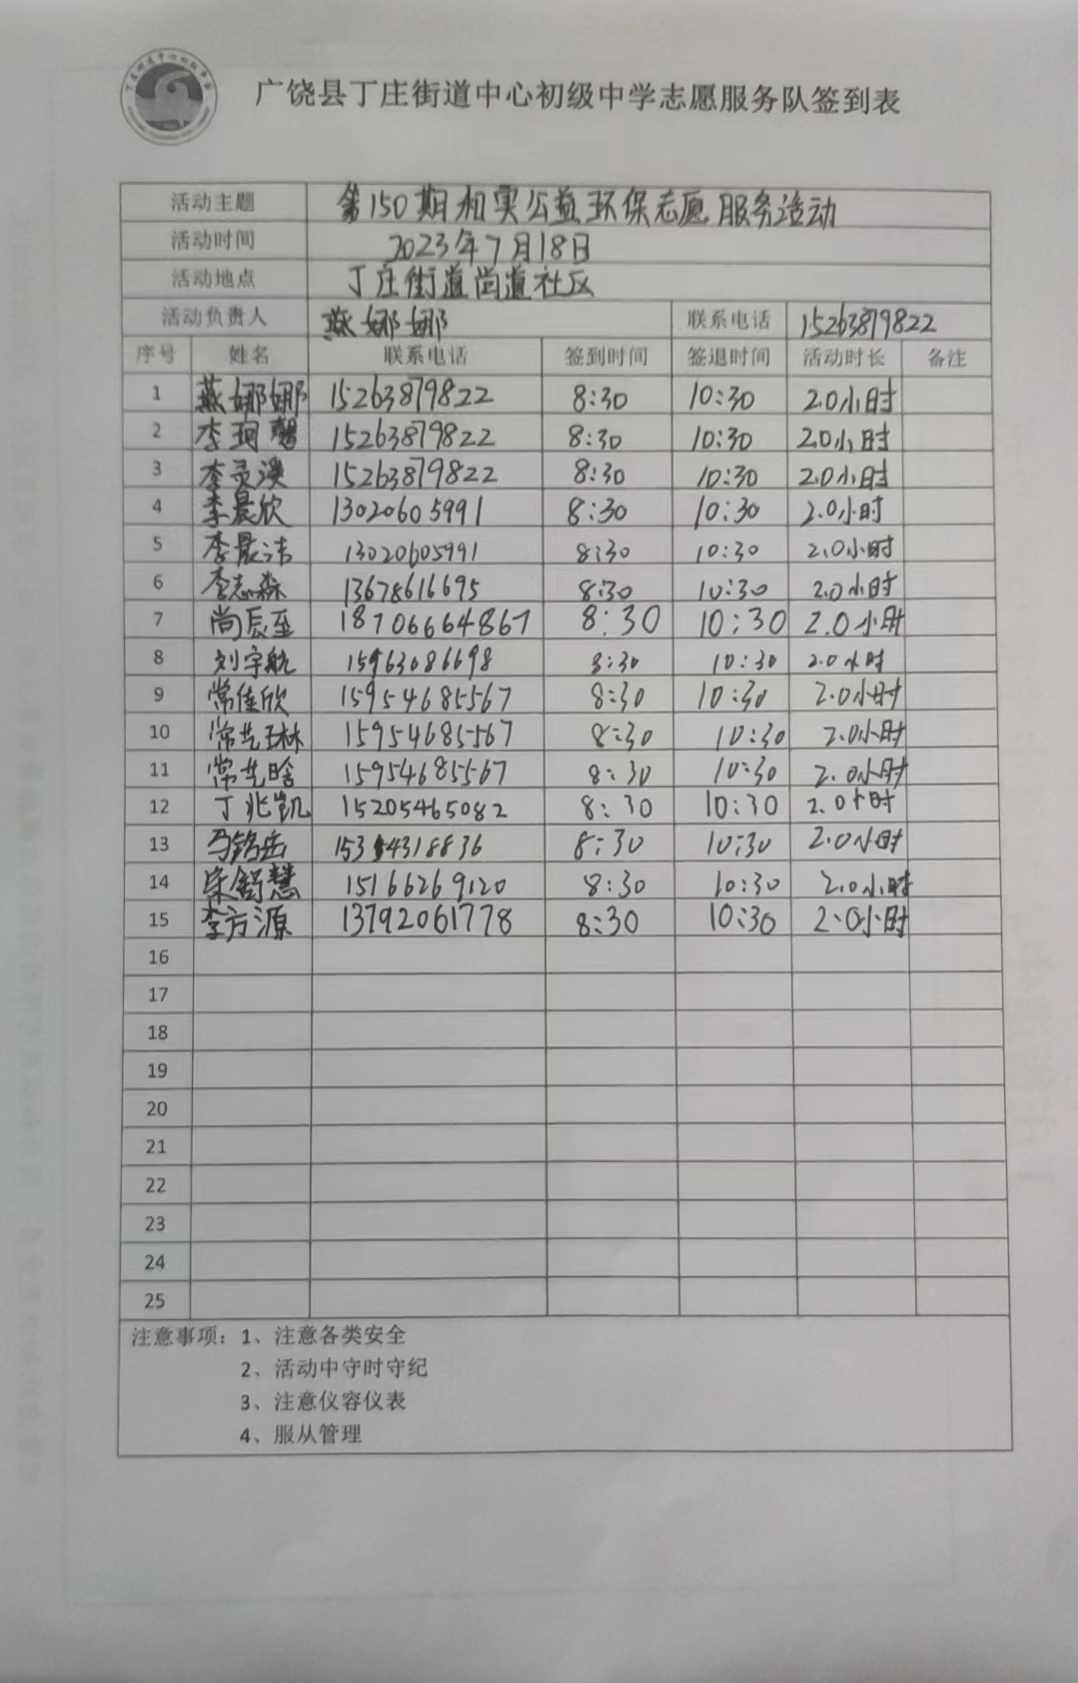 广饶县丁庄街道中心初级中学志愿服务队签到表
活动主题 第150期和実公益环保志愿服务活动
活动时间 2023年7月18日
活动地点 丁庄街道尚道社区
活动负责人 燕娜娜 联系电话 15263879822
序号 姓名 联系电话 签到时间 签退时间 活动时长 备注
1 燕娜娜 15263879822 8:30 10:30 2.0小时
2 李珂馨 15263879822 8:30 10:30 2.0小时
3 李灵溪 15263879822 8:30 10:30 2.0小时
4 李晨欣 13020605991 8:30 10:30 2.0小时
5 李晨 13020605991 8:30 10:30 2.0小时
6 李志淼 13678616695 8:30 10:30 2.0小时
7 尚辰至 18706664867 8:30 10:30 2.0小时
8 刘宇航 15963086698 8:30 10:30 2.0小时
9 常佳欣 15954685567 8:30 10:30 2.0小时
10 常艺琳 15954685567 8:30 10:30 2.0小时
11 常艺晗 15954685567 8:30 10:30 2.0小时
12 丁兆凯 15205465082 8:30 10:30 2.0小时
13 马铭岳 8:30 10:30 2.0小时
14 宋舒慧 15166269120 8:30 10:30 2.0小时
15 李方源 13792061778 8:30 10:30 2.0小时
16
17
18
19
20
21
22
23
24
25
注意事项：1、注意各类安全
2、活动中守时守纪
3、注意仪容仪表
4、服从管理